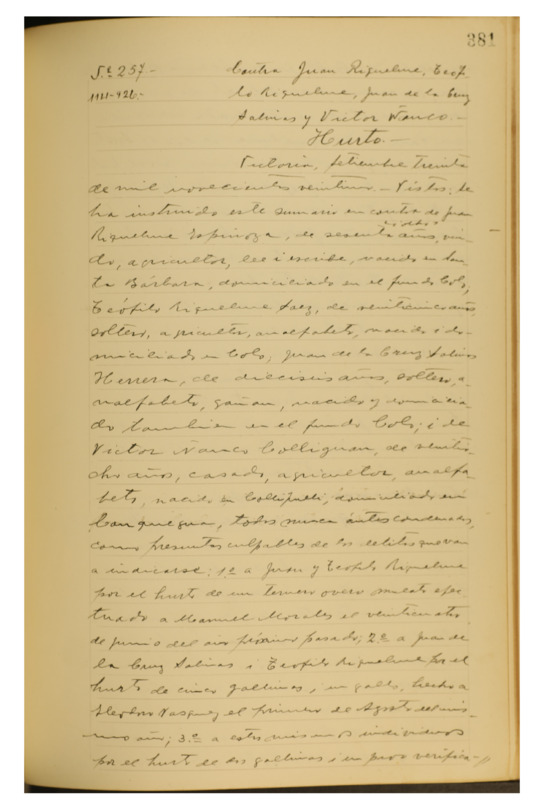 381
S.e 257.- Contra Juan Riquelme, Teófi-
1111-926.- lo Riquelme, Juan de la Cruz
Salinas y Victor Ñanco.-
Hurto.-
Victoria, setiembre treinta
de mil novecientos veintiuno.- Vistos: Se
ha instruido este sumario en contra de Juan
Riquelme Espinoza, de sesenta años, viu-
do, agricultor, lee i escribe, nacido en San-
ta Bárbara, domiciliado en el fundo Colo,
Teófilo Riquelme Saez, de veinticinco años
soltero, agricultor, analfabeto, nacido i do-
miciliado en Colo; Juan de la Cruz Salinas
Herrera, de dieciseis años, soltero, a-
nalfabeto, gañan, nacido y domicilia-
do tambien en el fundo Colo; i de
Victor Ñanco Colliguan, de veintio-
cho años, casado, agricultor, analfa-
beto, nacido en Collipulli, domiciliado en
todos nunca ántes condenados,
como presuntos culpables de los delitos que van
a indicarse: 1.o a Juan y Teofilo Riquelme
por el hurto de un ternero overo efec-
tuado a Manuel Morales el veinticuatro
de junio del año próximo pasado; 2.o a Juan de
la Cruz Salinas i Teofilo Riquelme por el
hurto de cinco gallinas, un gallo, hecho a
Heodoro Vasquez el primero de Agosto del mis-
mo año; 3.o a estos mismos individuos
por el hurto de dos gallinas i un pavo verifica-